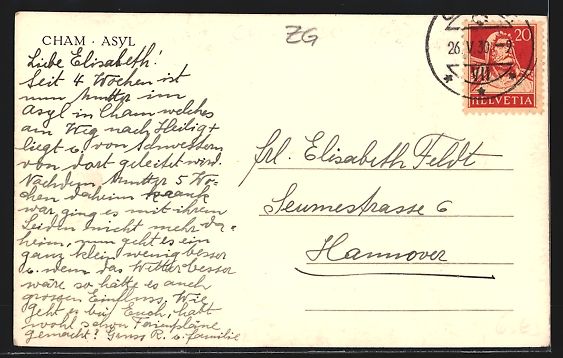 CHAM · ASYL
ZG
26.V.30.-9
VII
20
HELVETIA
Liebe Elisabeth!
Seit 4 Wochen ist
nun Mutter im
Asyl in Cham welches
am Weg nach Heilig +
liegt u. von Schwestern
von dort geleitet wird.
Nachdem Mutter 5 Wo-
chen daheim krank
war ging es mit ihrem
Leiden nicht mehr da-
heim, nun geht es ein
ganz klein wenig besser
u. wenn das Wetter besser
wäre so hätte es auch
grossen Einfluss. Wie
geht es bei Euch, habt
wohl schon Ferienpläne
gemacht? Gruss R. u. familie
Frl. Elisabeth Feldt
Seumestrasse 6
Hannover